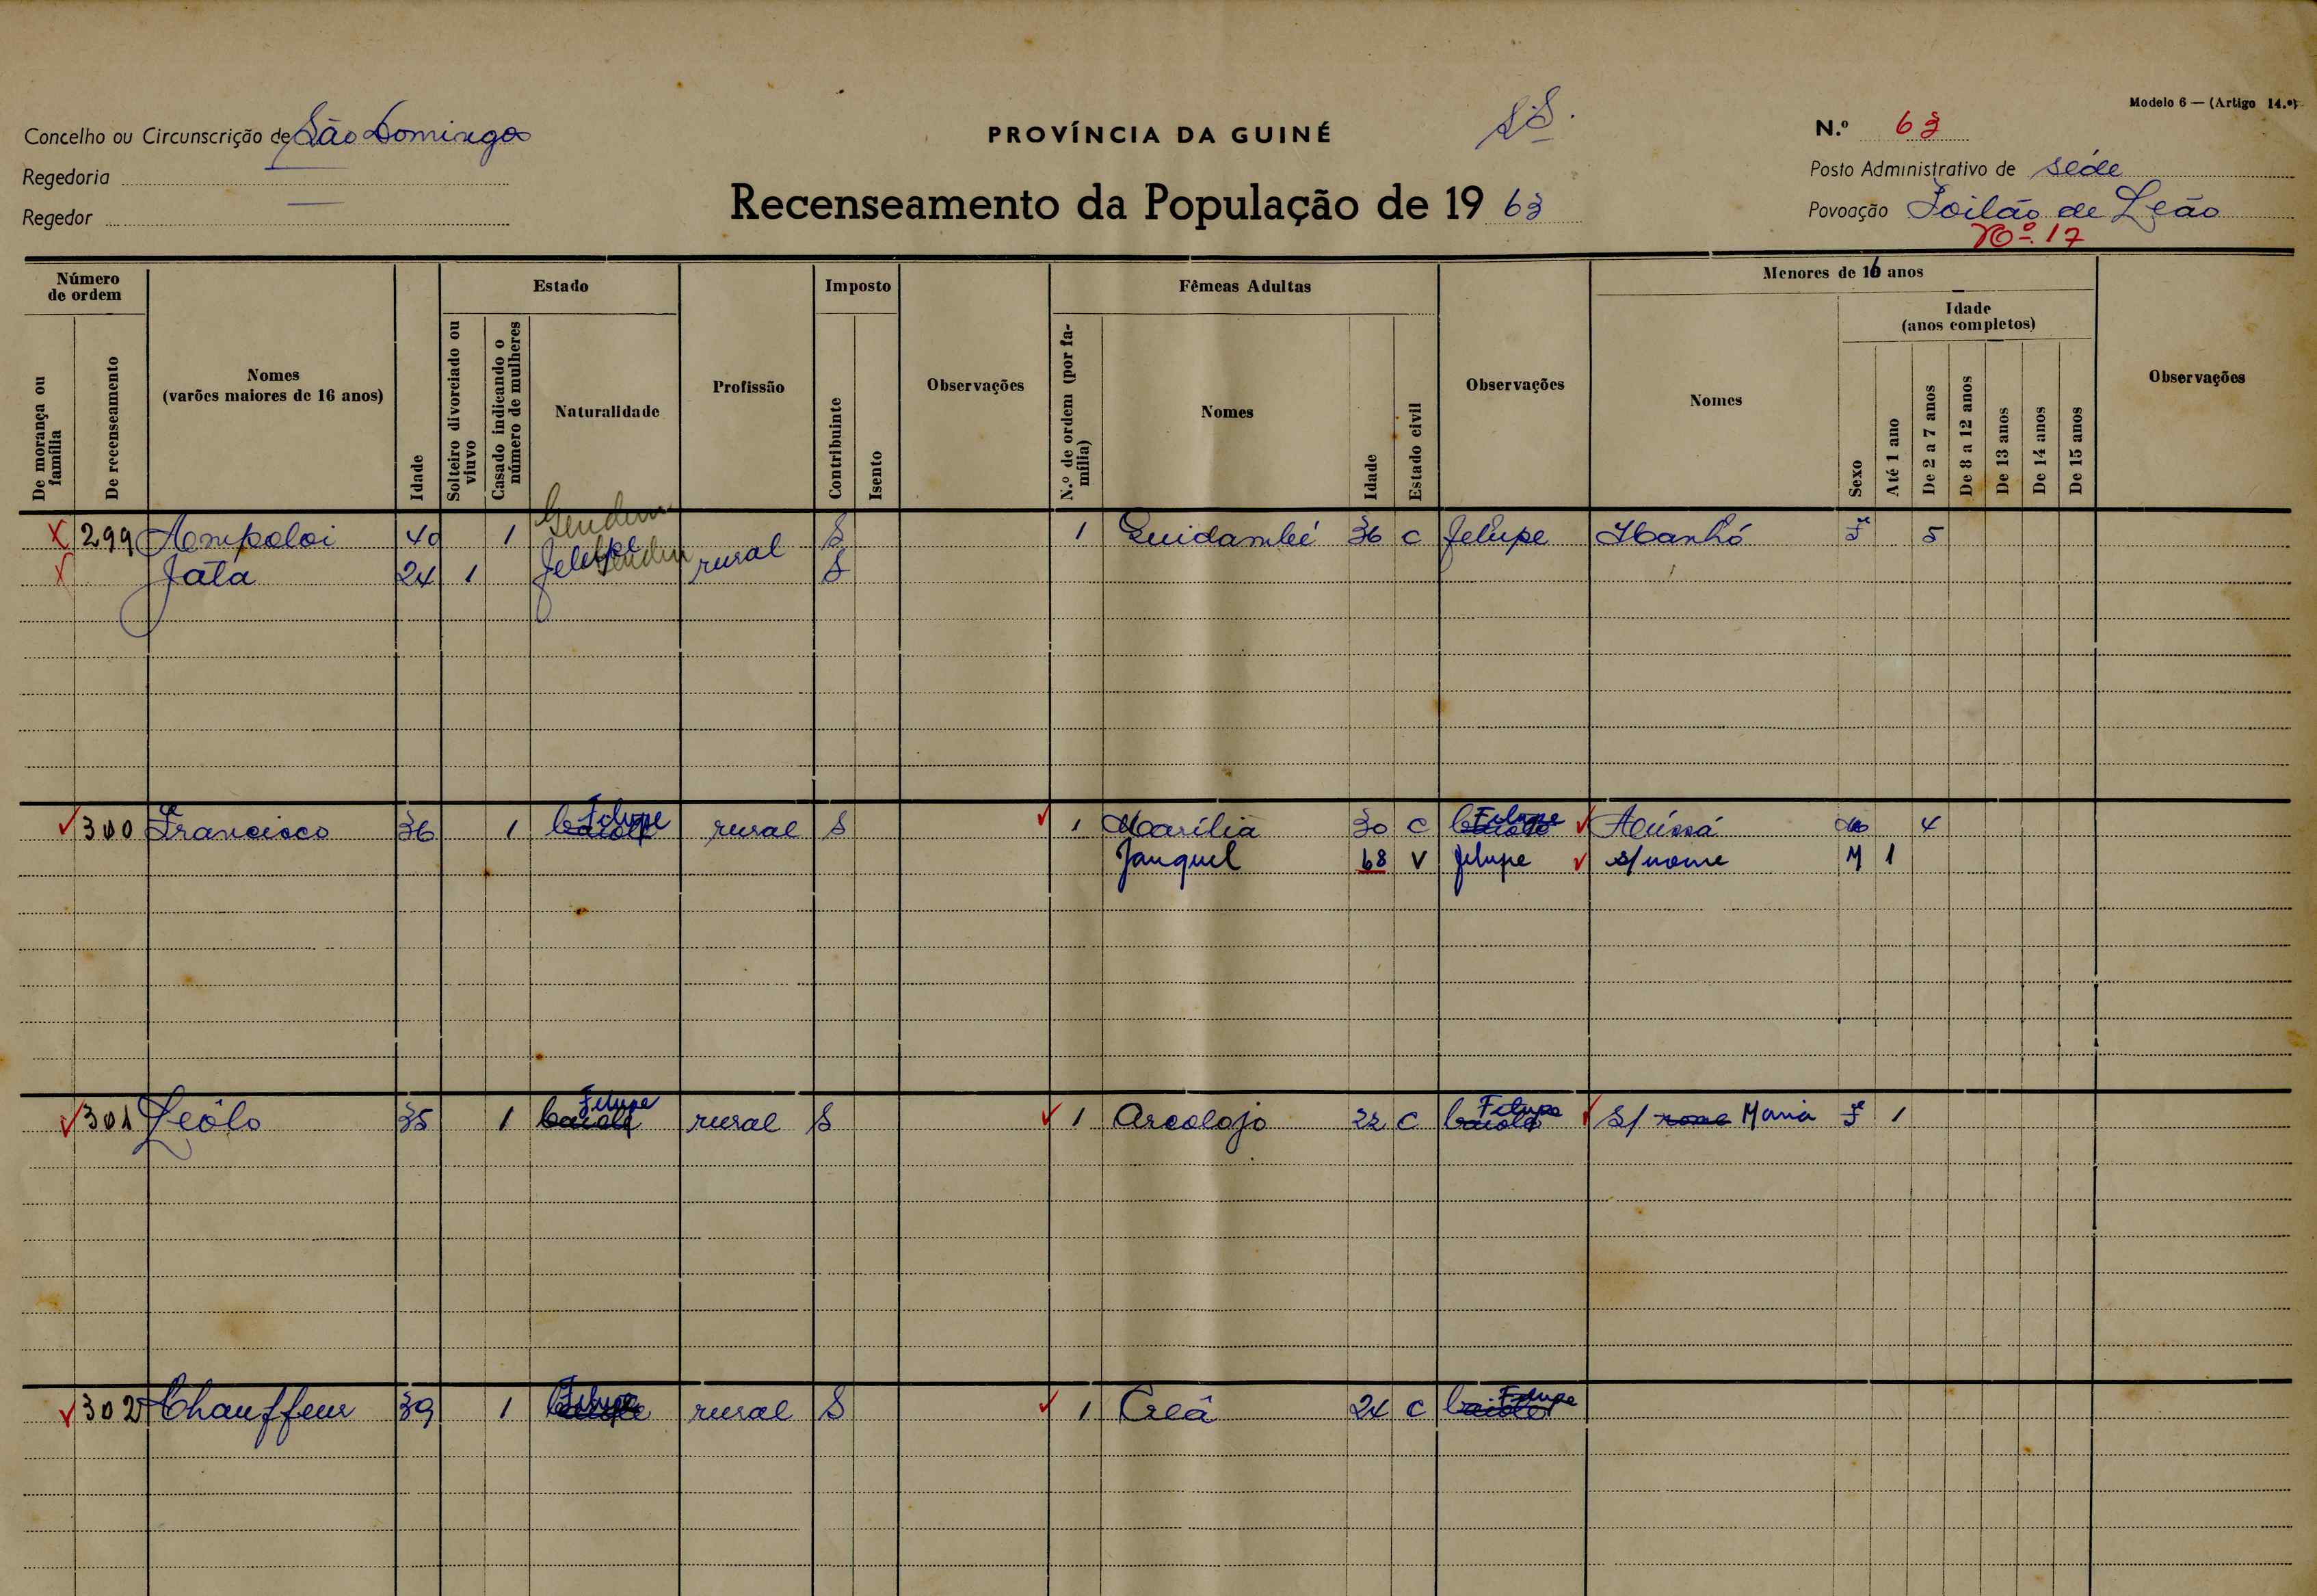 Modelo 6 — (Artigo 14.º)
Concelho ou Circunscrição de São Domingos
PROVÍNCIA DA GUINÉ
N.º 63
Regedoria —
Posto Administrativo de séde
Regedor —
Recenseamento da População de 1963
Povoação Foilão de Leão
Nº 17
Número de ordem
Estado
Imposto
Fêmeas Adultas
Menores de 16 anos
Idade
(anos completos)
De morança ou família
De recenseamento
Nomes
(varões maiores de 16 anos)
Idade
Solteiro divorciado ou viuvo
Casado indicando o número de mulheres
Naturalidade
Profissão
Contribuinte
Isento
Observações
N.º de ordem (por família)
Nomes
Idade
Estado civil
Observações
Nomes
Sexo
Até 1 ano
De 2 a 7 anos
De 8 a 12 anos
De 13 anos
De 14 anos
De 15 anos
Observações
X 299 Ampoloi 40 1 Felupe rural S 1 Guidambé 36 C Felupe Manhó F 5
X Jatá 24 1 S
300 Francisco 36 1 Felupe rural S 1 Marília 30 C Felupe Aússá M 4
Janquel 68 V felupe s/nome M 1
301 Leôlo 35 1 baiote Felupe rural S 1 Arcolojo 22 C baiote Felupe S/ nome Maria F 1
302 Chauffeur 39 1 Felupe rural S 1 Creâ 24 C baiote Felupe